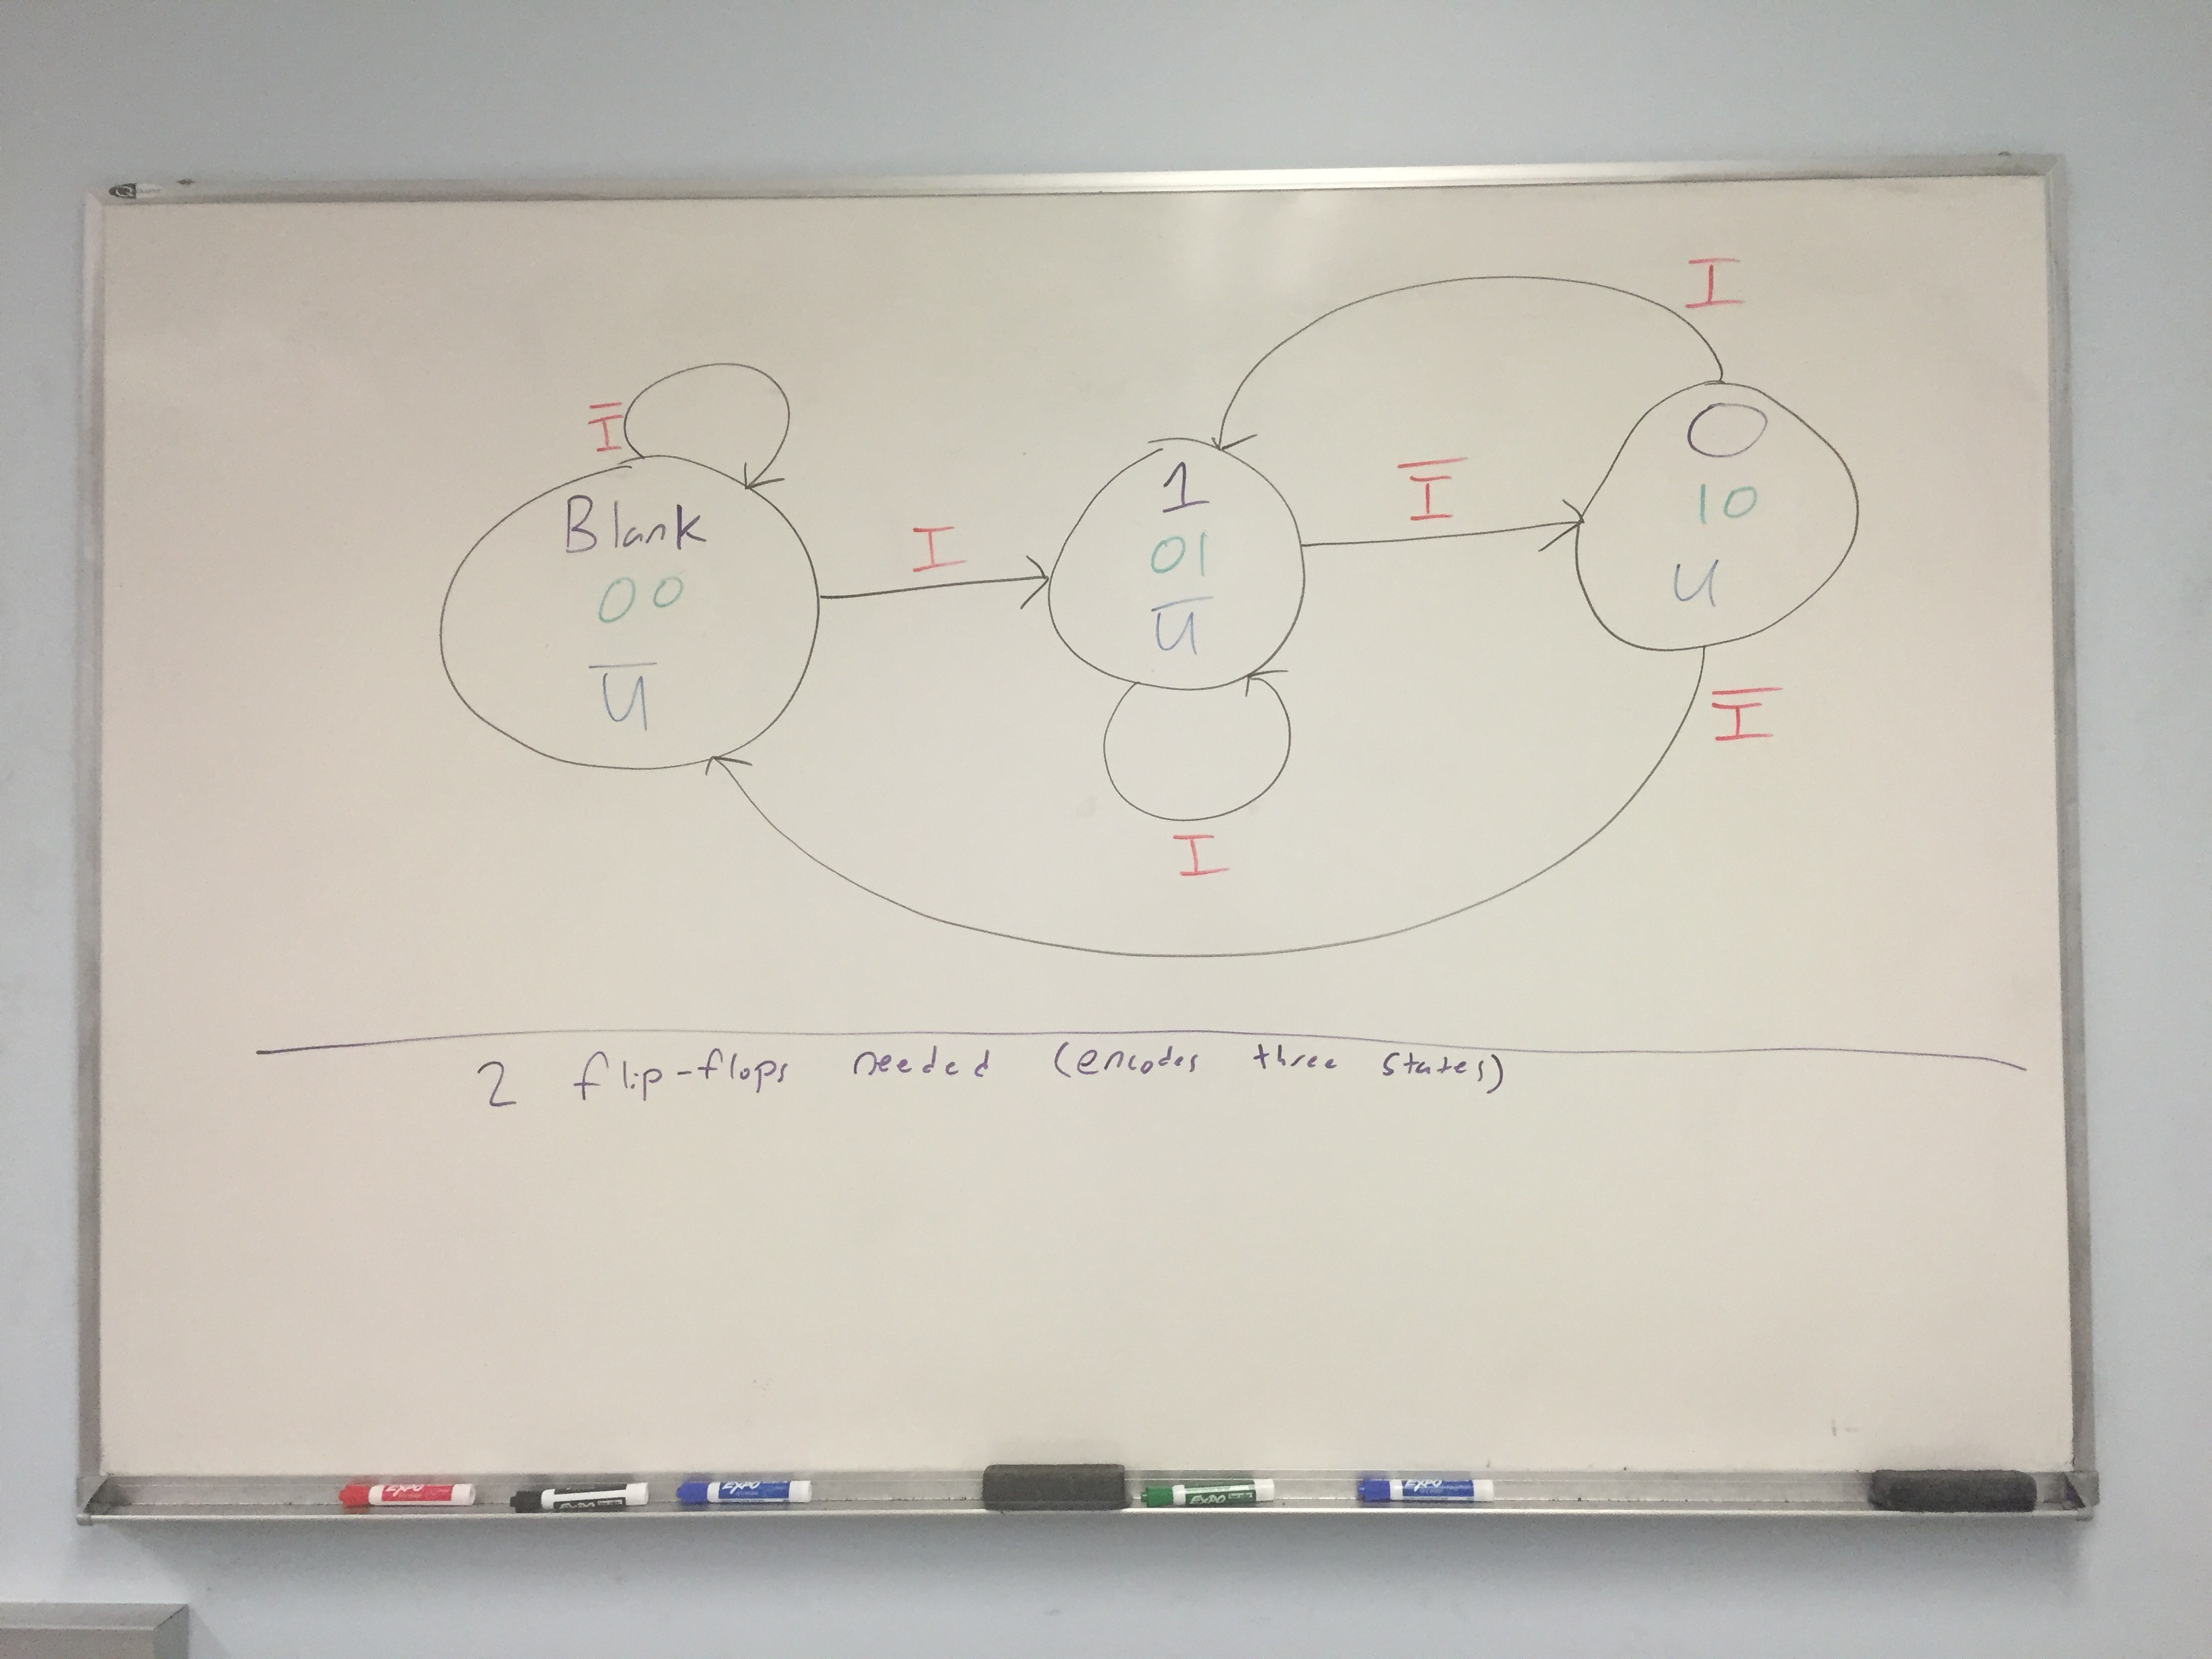 I
I̅
Blank
00
U̅
I
1
01
U̅
I
I̅
0
10
U
I̅
2 flip-flops needed (encodes three states)
EXPO
EXPO
EXPO
EXPO
EXPO